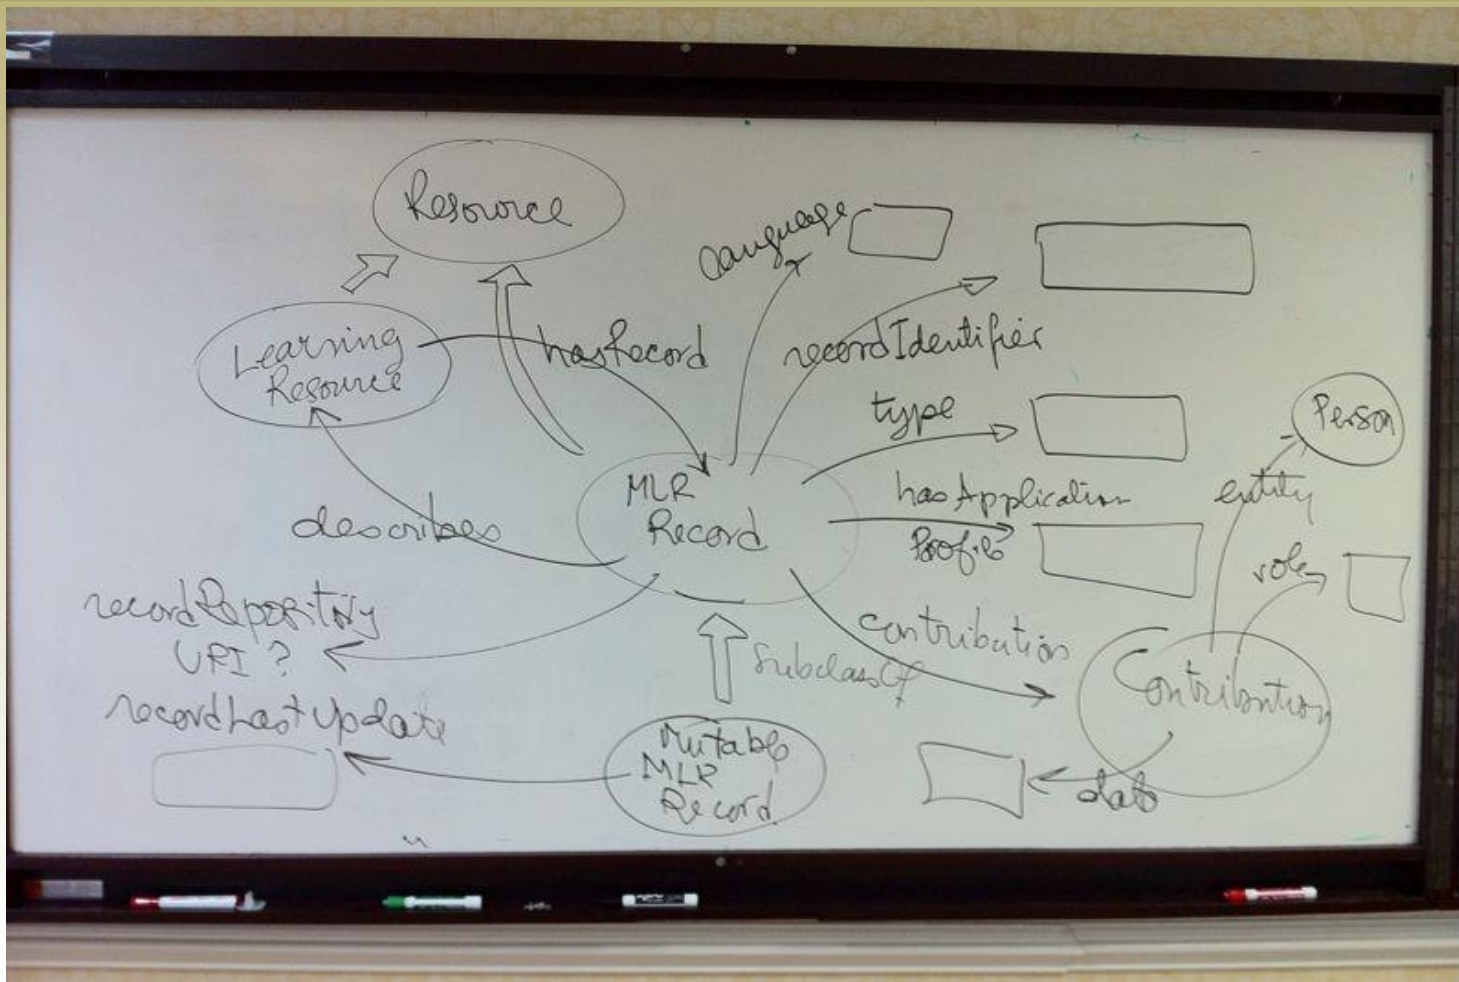 Resource
Language
Learning
Resource
hasRecord
recordIdentifier
type
Person
MLR
Record
hasApplication
Profile
entity
describes
role
recordRepository
URI ?
contribution
subclassOf
Contribution
recordLastUpdate
Mutable
MLR
Record
date